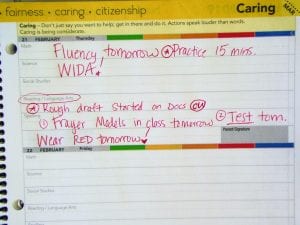 fairness • caring • citizenship
Caring
Caring – Don't just say you want to help; get in there and do it. Actions speak louder than words.
Caring is being considerate.
21 FEBRUARY Thursday
Math
Fluency tomorrow ☆Practice 15 mins.
Science
WIDA!
Social Studies
Reading / Language Arts
☆ Rough draft started on Docs
① Frayer Models in class tomorrow ② Test tom.
Wear RED tomorrow!
Parent Signature
22 FEBRUARY Friday
Math
Science
Social Studies
Reading / Language Arts